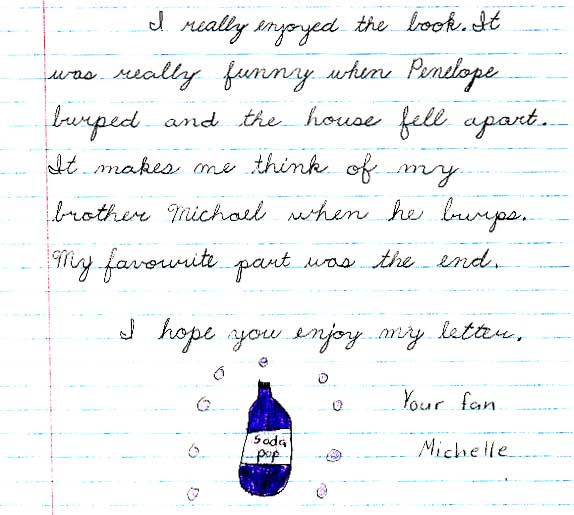 I really enjoyed the book. It
was really funny when Penelope
burped and the house fell apart.
It makes me think of my
brother Michael when he burps.
My favourite part was the end.
I hope you enjoy my letter.
Your fan
Michelle
Soda
pop